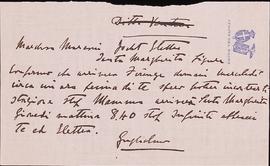 Madame Marconi
Santa Margherita Ligure
Confermo che arriverò Firenze domani mercoledì
circa un'ora prima di te spero poter incontrarti
stazione stop Mamma arriverà Santa Margherita
Giovedì mattina 8,40 stop Infiniti abbracci
te ed Elettra
Guglielmo